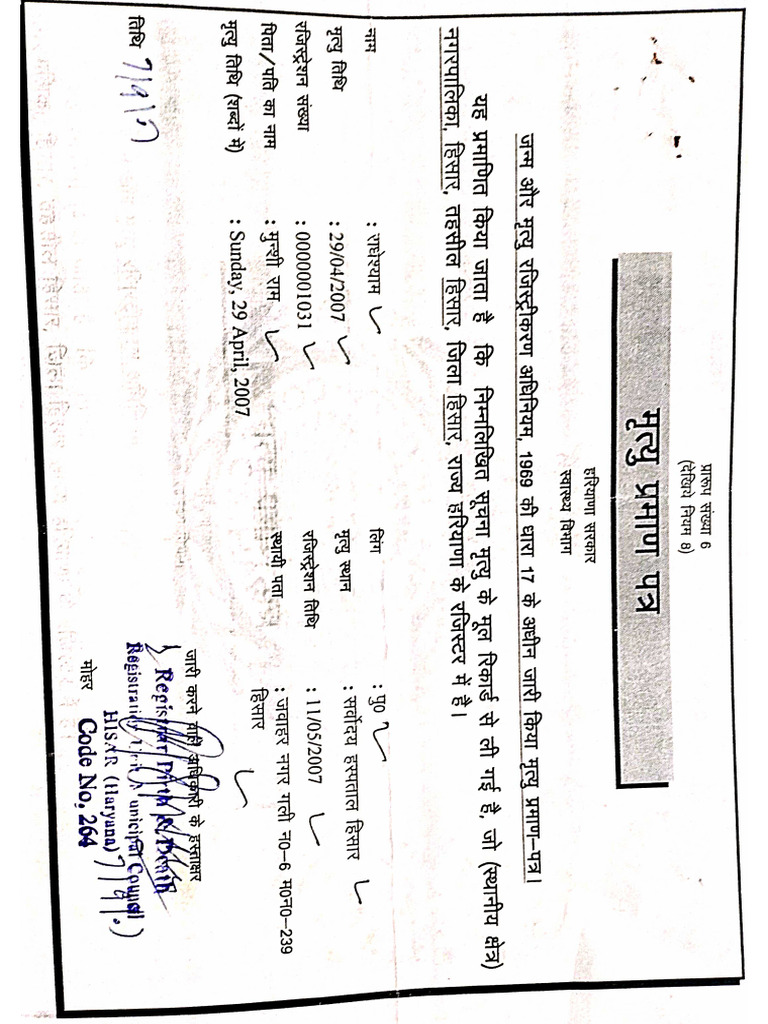 प्रारूप संख्या 6
(देखिये नियम 8)
मृत्यु प्रमाण पत्र
हरियाणा सरकार
स्वास्थ्य विभाग
जन्म और मृत्यु रजिस्ट्रीकरण अधिनियम, 1969 की धारा 17 के अधीन जारी किया मृत्यु प्रमाण-पत्र।
यह प्रमाणित किया जाता है कि निम्नलिखित सूचना मृत्यु के मूल रिकार्ड से ली गई है, जो (स्थानीय क्षेत्र)
नगरपालिका, हिसार, तहसील हिसार, जिला हिसार, राज्य हरियाणा के रजिस्टर में है।
नाम : राधेश्याम लिंग : पु0
मृत्यु तिथि : 29/04/2007 मृत्यु स्थान : सर्वोदय हस्पताल हिसार
रजिस्ट्रेशन संख्या : 0000001031 रजिस्ट्रेशन तिथि : 11/05/2007
पिता/पति का नाम : मुन्शी राम स्थायी पता : जवाहर नगर गली न0-6 म0न0-239
हिसार
मृत्यु तिथि (शब्दों में) : Sunday, 29 April, 2007
जारी करने वाले अधिकारी के हस्ताक्षर
Registrar Birth & Death
तिथि 7/9/07
Municipal Council
HISAR (Haryana)
मोहर
Code No, 264